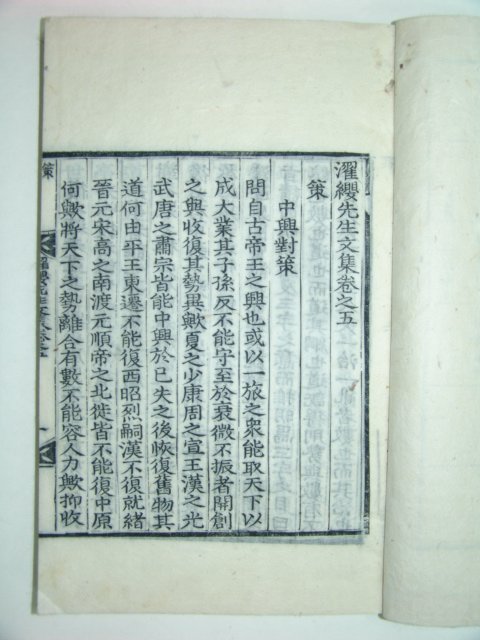 濯纓先生文集卷之五
策
中興對策
問自古帝王之興也或以一旅之衆能取天下以
成大業其子孫反不能守至於衰微不振者開創
之興收復其勢異歟夏之少康周之宣王漢之光
武唐之肅宗皆能中興於已失之後恢復舊物其
道何由平王東遷不能復西昭烈嗣漢不復就緖
晉元宋高之南渡元順帝之北徙皆不能復中原
何歟將天下之勢離合有數不能容人力歟抑收
策